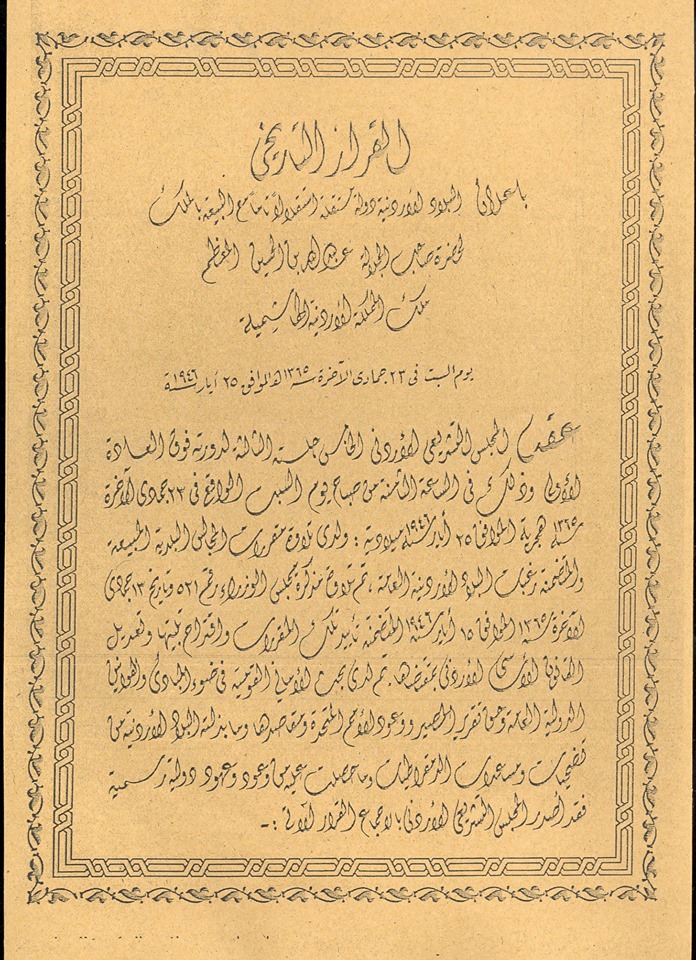 القرار التاريخي
باعلان البلاد الأردنية دولة مستقلة استقلالاً تاماً مع البيعة بالملك
لحضرة صاحب الجلالة عبد الله بن الحسين المعظم
ملك المملكة الأردنية الهاشمية
يوم السبت في ٢٣ جمادى الآخرة سنة ١٣٦٥ هـ الموافق ٢٥ أيار سنة ١٩٤٦
عقد المجلس التشريعي الأردني الخامس جلسته الثالثة لدورته فوق العادة
الأولى وذلك في الساعة الثامنة من صباح يوم السبت الواقع في ٢٣ جمادى الآخرة
سنة ١٣٦٥ هجرية الموافق ٢٥ أيار سنة ١٩٤٦ ميلادية : ولدى تلاوة مقررات المجالس البلدية المبيعة
والمتضمنة رغبات البلاد الأردنية العامة ، تم تلاوة مذكرة مجلس الوزراء رقم ٥٢١ وتاريخ ١٣ جمادى
الآخرة سنة ١٣٦٥ الموافق ١٥ أيار سنة ١٩٤٦ المتضمنة تأييد تلك المقررات واقتراح تلبيتها وتعديل
القانون الأساسي الأردني بمقتضاها . ثم لدى بحث الأماني القومية في ضوء المبادئ والمواثيق
الدولية العامة وحق تقرير المصير ووعود الأمم المتحدة ومقاصدها وما بذلته البلاد الأردنية من
تضحيات ومساعدات الديمقراطيات وما حصلت عليه من وعود وعهود دولية رسمية
فقد أصدر المجلس التشريعي الأردني بالاجماع القرار الآتي :-